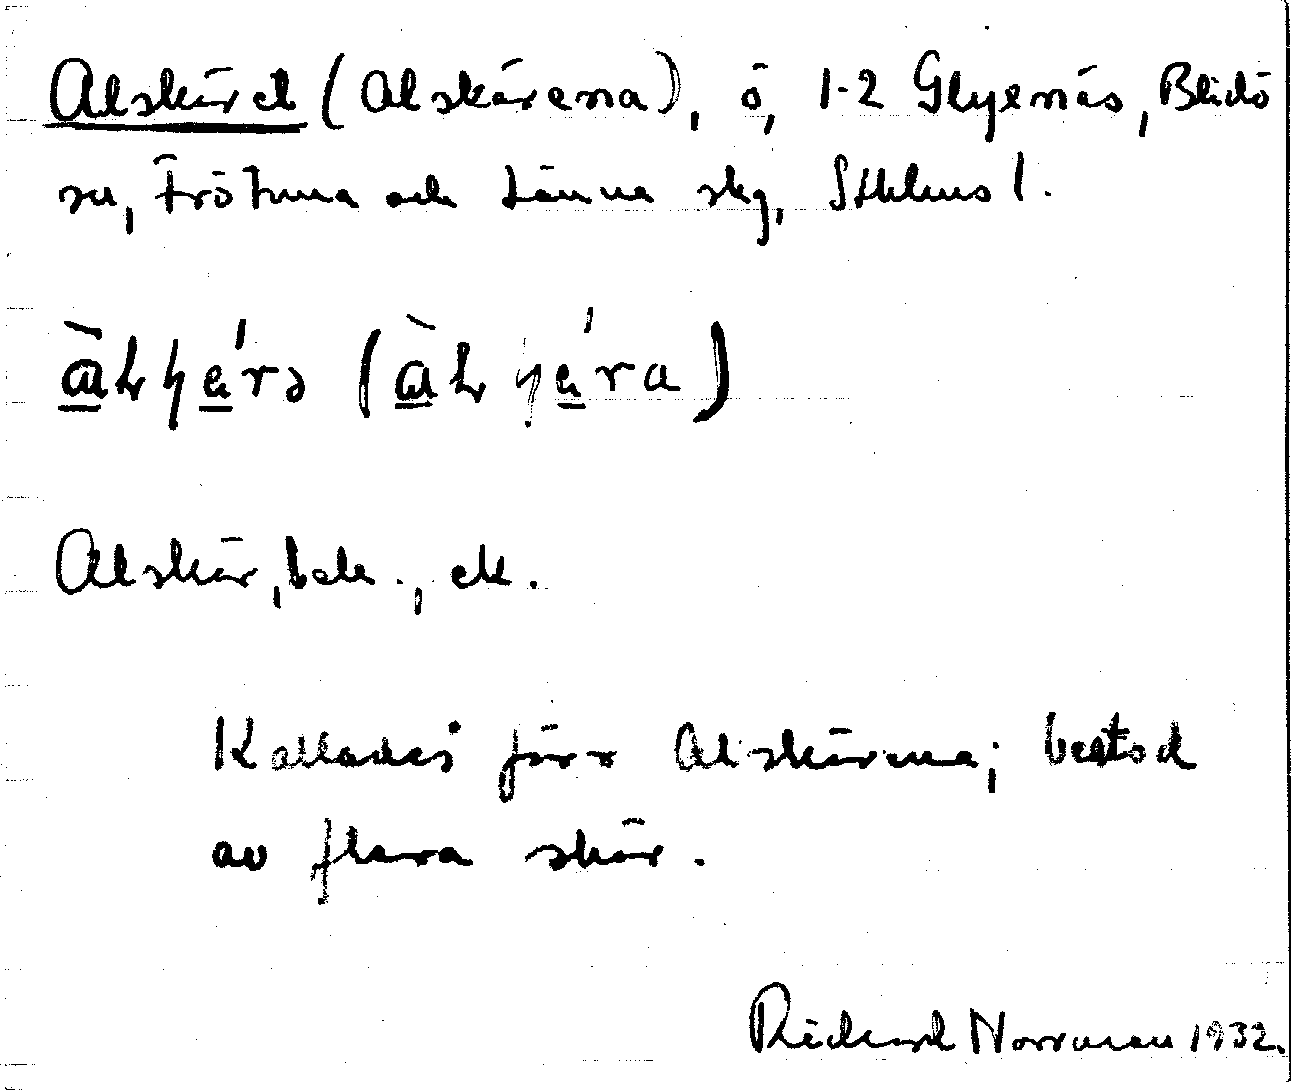 Alskäret (Alskärena), ö, 1-2 Glyxnäs, Blidö
sn, Frötuna och Länna skg, Sthlms l.
Alskär, bek., ek.
Kallades förr Alskärena; bestod
av flera skär.
Richard Norrman 1932.